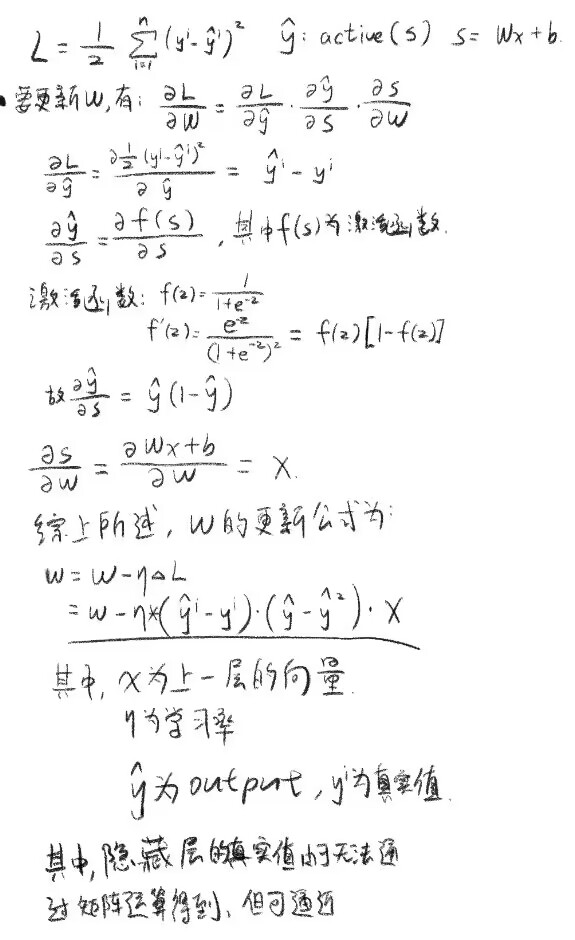 L = 1/2 Σ_{i=1}^{n} (y^i - ŷ^i)²  ŷ: active(s)  s = Wx + b.
要更新W,有: ∂L/∂W = ∂L/∂ŷ · ∂ŷ/∂s · ∂s/∂W
∂L/∂ŷ = ∂ 1/2 (y^i - ŷ^i)² / ∂ŷ = ŷ^i - y^i
∂ŷ/∂s = ∂f(s)/∂s , 其中f(s)为激活函数.
激活函数: f(z) = 1/(1+e^{-z})
f'(z) = e^{-z}/(1+e^{-z})² = f(z)[1-f(z)]
故 ∂ŷ/∂s = ŷ(1-ŷ)
∂s/∂W = ∂Wx+b/∂W = X.
综上所述, W的更新公式为:
W = W - η△L
= W - η*(ŷ^i - y^i)·(ŷ - ŷ²)·X
其中, X为上一层的向量.
η为学习率
ŷ为output, y^i为真实值.
其中,隐藏层的真实值由于无法通
过矩阵运算得到、但可通过